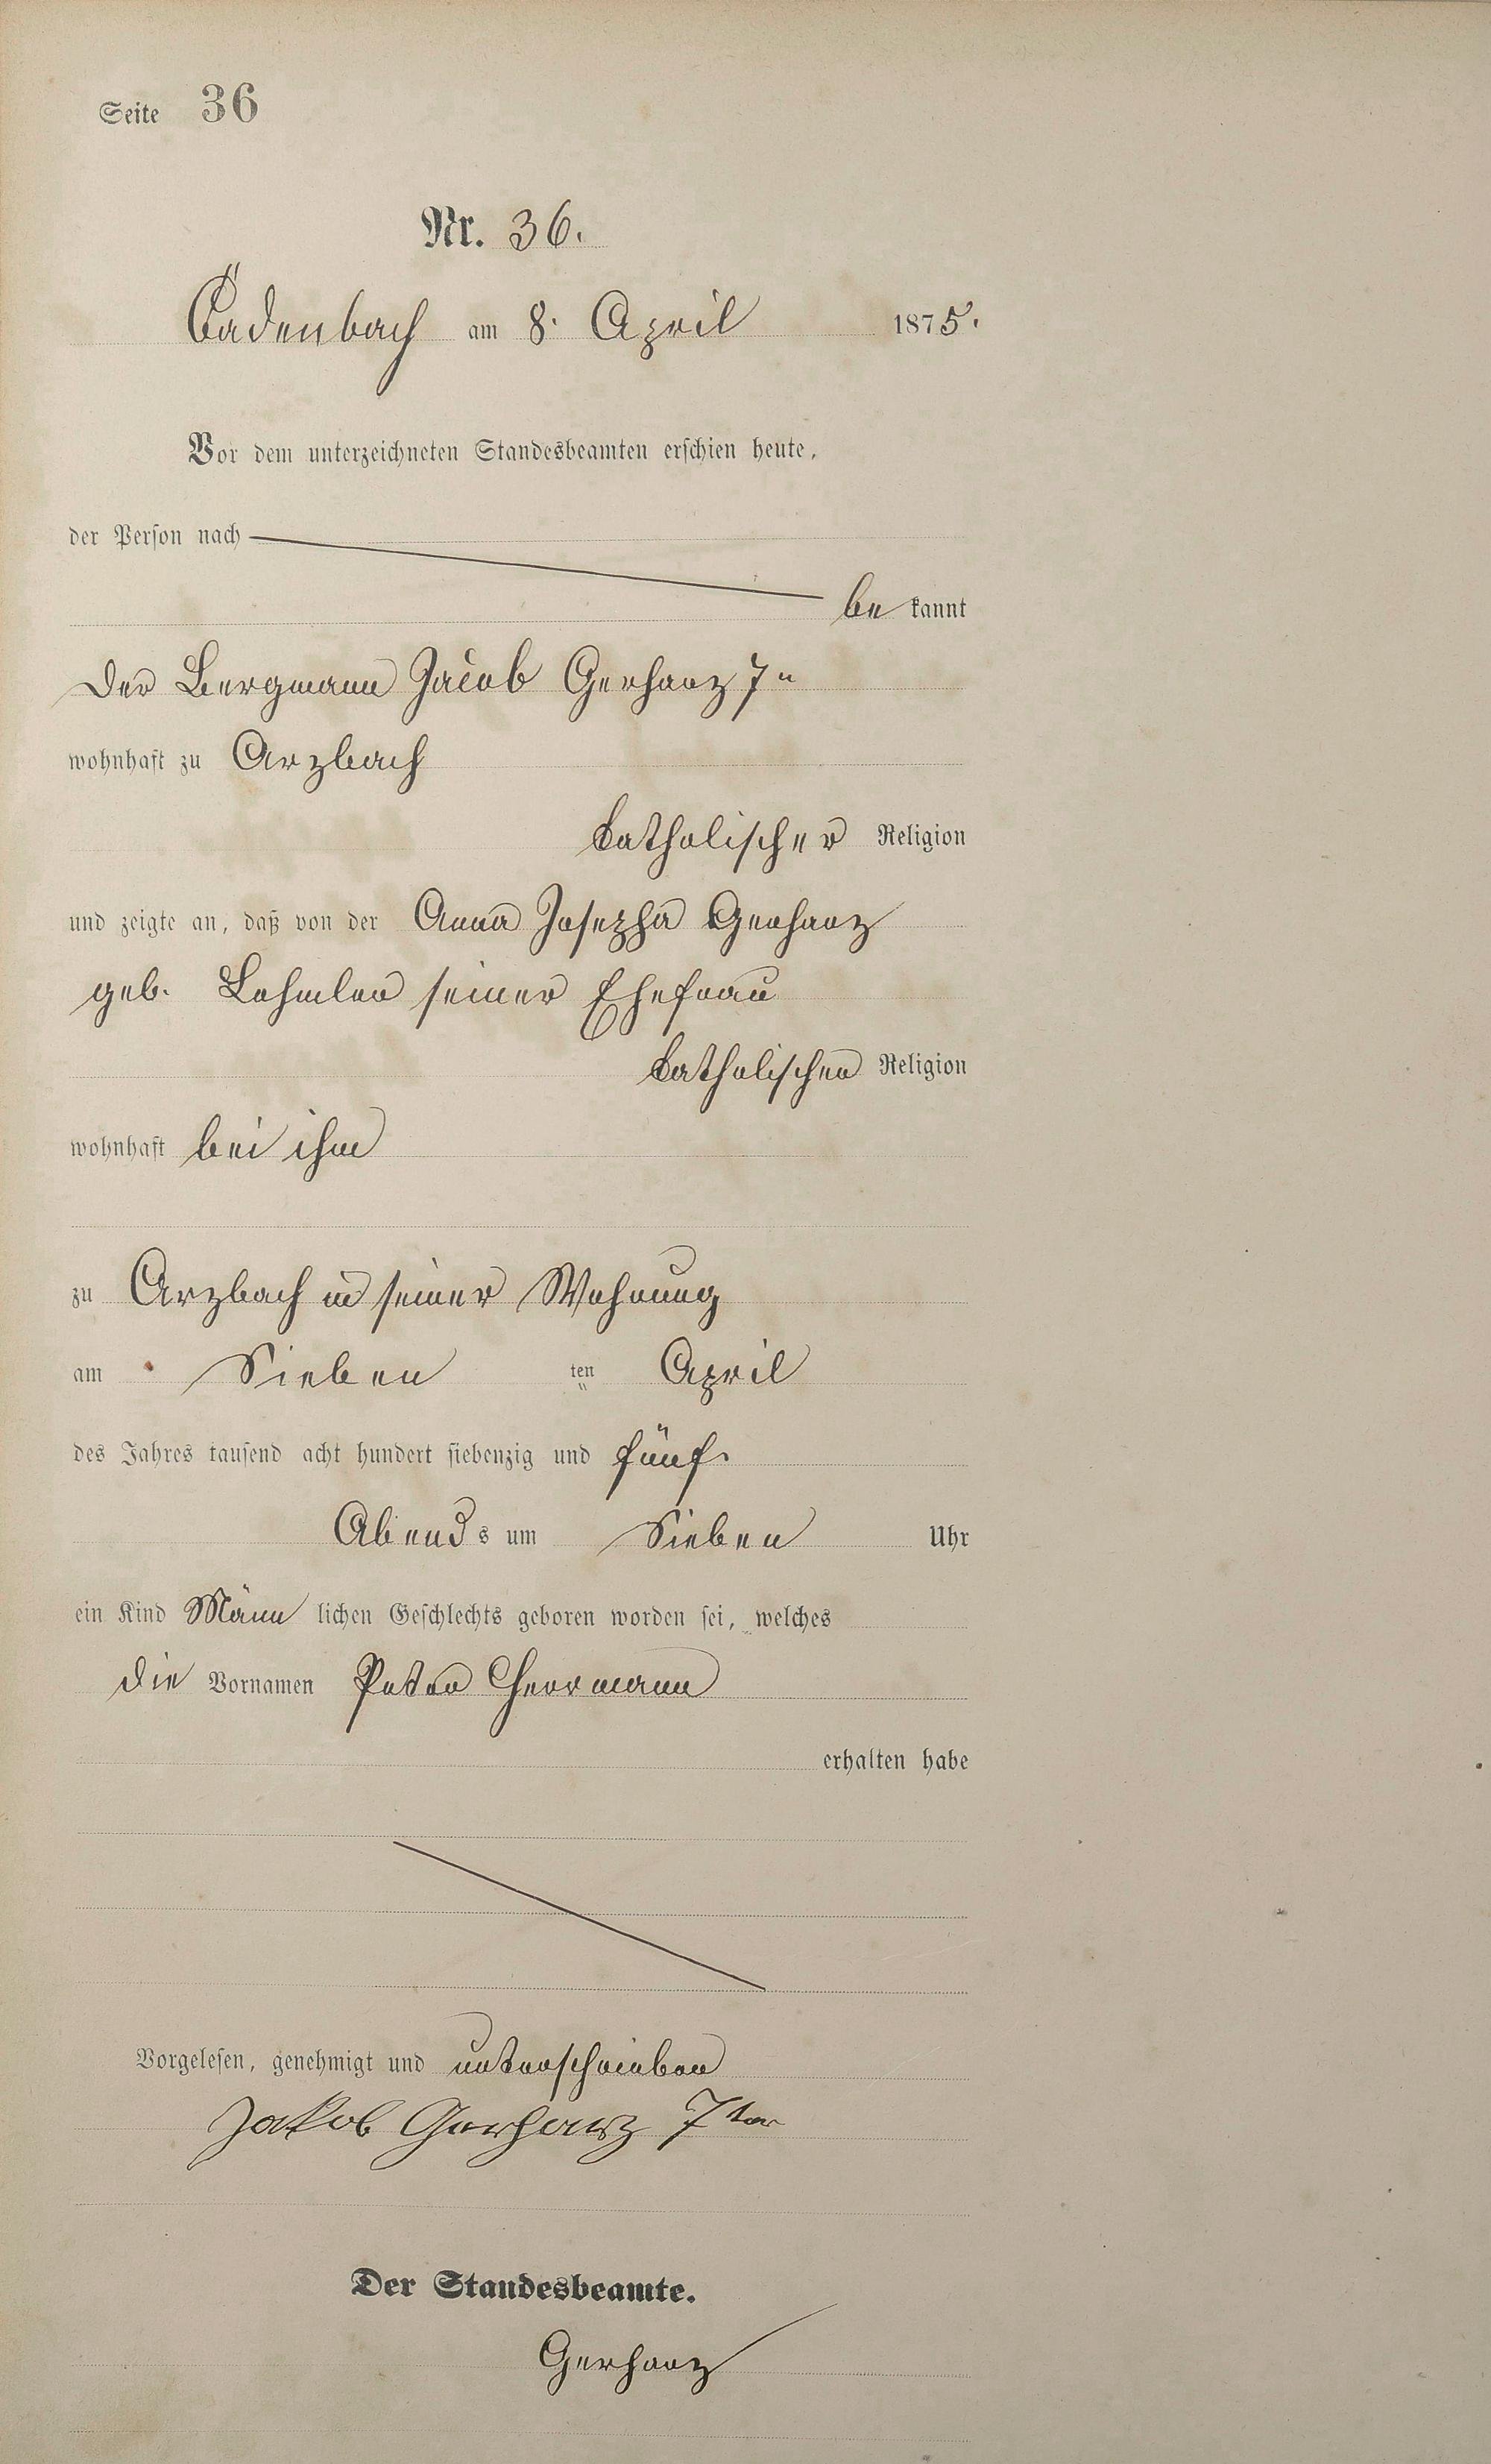 Seite 36
Nr. 36.
Cadenbach am 8. April 1875.
Vor dem unterzeichneten Standesbeamten erschien heute,
der Person nach
be kannt
der Bergmann Jacob Gerharz 7r
wohnhaft zu Arzbach
katholischer Religion
und zeigte an, daß von der Anna Josepha Gerharz
geb. Lehmler seiner Ehefrau
katholischer Religion
wohnhaft bei ihm
zu Arzbach in seiner Wohnung
am Sieben ten April
des Jahres tausend acht hundert siebenzig und fünf.
Abends um Sieben Uhr
ein Kind Männ lichen Geschlechts geboren worden sei, welches
die Vornamen Peter Herrmann
erhalten habe
Vorgelesen, genehmigt und unterschrieben
Jakob Gerharz 7ter
Der Standesbeamte.
Gerharz